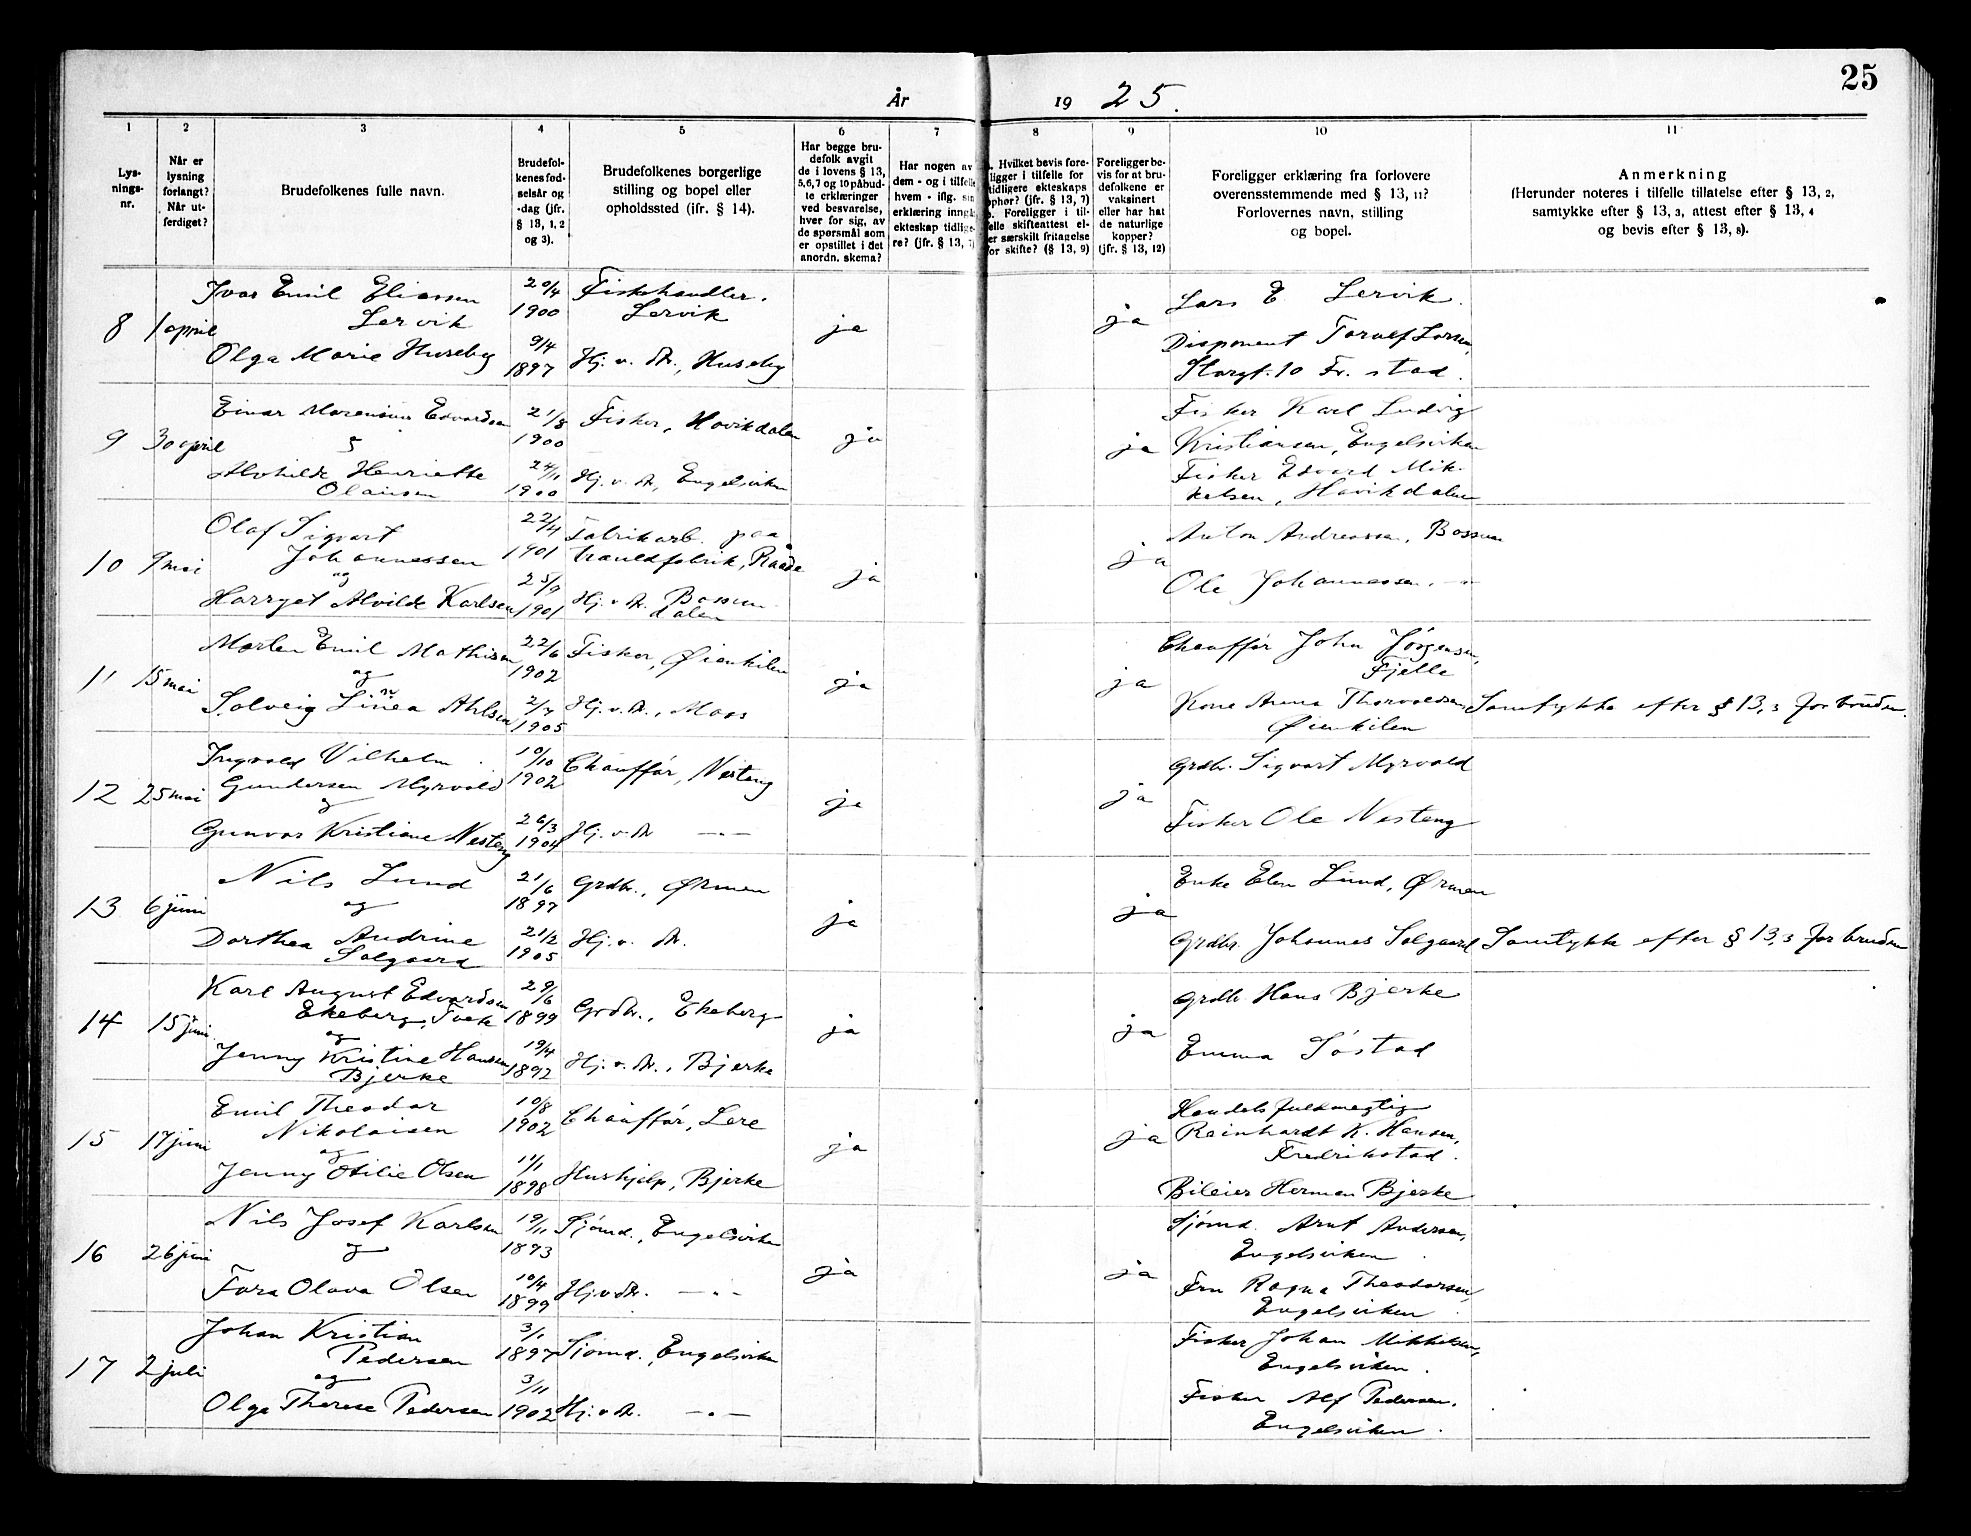 25
År 19 25.
1 2 3 4 5 6 7 8 9 10 11
Lys-
nings-
nr.
Når er
lysning
forlangt?
Når ut-
ferdiget?
Brudefolkenes fulle navn.
Brudefol-
kenes fød-
selsår og
-dag (jfr.
§ 13, 1, 2
og 3).
Brudefolkenes borgerlige
stilling og bopel eller
opholdssted (jfr. § 14).
Har begge bru-
defolk avgit
de i lovens § 13,
5,6,7 og 10 påbud-
te erklæringer
ved besvarelse,
hver for sig, av
de spørsmål som
er opstillet i det
anordn. skema?
Har nogen av
dem - og i tilfelle
hvem - iflg. sin
erklæring inngå
ekteskap tidlige-
re? (jfr. § 13, 7)
Hvilket bevis fore-
ligger i tilfelle for
tidligere ekteskaps
ophør? (jfr. § 13, 7)
Foreligger i til-
elle skifteattest el-
er særskilt fritagelse
for skifte? (§ 13, 9)
Foreligger be-
vis for at bru-
defolkene er
vaksinert
eller har hat
de naturlige
kopper?
(jfr. § 13, 12)
Foreligger erklæring fra forlovere
overensstemmende med § 13, 11?
Forlovernes navn, stilling
og bopel.
Anmerkning
(Herunder noteres i tilfelle tillatelse efter § 13, 2,
samtykke efter § 13, 3, attest efter § 13, 4
og bevis efter § 13, 8).
8 1 april
Ivar Emil Eliassen
Lervik
Olga Marie Huseby
20/4
1900
9/4
1897
Fiskehandler.
Lervik
Hj. v. M., Huseby
ja
ja
Lars E. Lervik.
Disponent Toralf Larsen,
Storgt. 10 Fr. stad.
9 30 april
Einar Marensius Edvardsen
Alvhilde Henriette
Olaisen
21/8
1900
24/11
1900
Fisker, Hovikdalen
Hj. v. M., Engelsviken
ja
ja
Fisker Karl Ludvig
Kristiansen, Engelsviken
Fisker Edvard Mik-
kelsen, Hovikdalen
10 9 mai
Olaf Sigvart
Johannessen
og
Harryet Alvilde Karlsen
22/4
1901
25/9
1901
Fabrikarb. paa
trauldfabrik, Raade
Hj. v. M. Bossum
dalen
ja
ja
Anton Andreassen, Bossum
Ole Johannessen. -"-
11 15 mai
Marten Emil Mathisen
og
Solveig Linnea Ahlsen
22/6
1902
2/7
1905
Fisker, Øienkilen
Hj. v. M., Moss
ja
ja
Chauffør John Jørgensen,
Fjelle
Kone Anna Thorvaldsen,
Øienkilen
Samtykke efter § 13, 3 for bruden.
12 25 mai
Ingvald Vilhelm
Gundersen Myrvold
og
Gunvor Kristiane Nesteng
10/10
1902
26/3
1904
Chauffør, Nesteng
Hj. v. M -"-
ja
ja
Grdbr. Sigvart Myrvold
Fisker Ole Nesteng
13 6 juni
Nils Lund
og
Dorthea Andrine
Solgaard
21/6
1897
21/2
1905
Grdbr., Ørmen
Hj. v. M.
ja
ja
Enke Elen Lund, Ørmen
Grdbr. Johannes Solgaard
Samtykke efter § 13, 3 for bruden
14 15 juni
Karl August Edvardsen
Ekeberg, Tvete
og
Jenny Kristine Hansen
Bjerke
29/6
1899
19/4
1892
Grdbr., Ekeberg
Hj. v. M., Bjerke
ja
ja
Grdbr Hans Bjerke
Emma Søstad
15 17 juni
Emil Theodor
Nikolaisen
og
Jenny Otilie Olsen
10/8
1902
11/1
1898
Chauffør, Lere
Hushjelp, Bjerke
ja
ja
Handelsfuldmægtig
Reinhardt K. Hansen,
Fredrikstad.
Bileier Herman Bjerke
16 26 juni
Nils Josef Karlsen
og
Tora Olava Olsen
19/11
1893
10/4
1899
Sjømd., Engelsviken
Hj.v.M. -"-
ja
ja
Sjømd. Arnt Andersen,
Engelsviken.
Fru Ragna Theodorsen,
Engelsviken.
17 2 juli
Johan Kristian
Pedersen
og
Olga Therese Pedersen
3/1
1897
3/11
1902
Sjømd., Engelsviken
Hj. v M. -"-
Fisker Johan Mikkelsen,
Engelsviken.
Fisker Alf Pedersen.
Engelsviken.